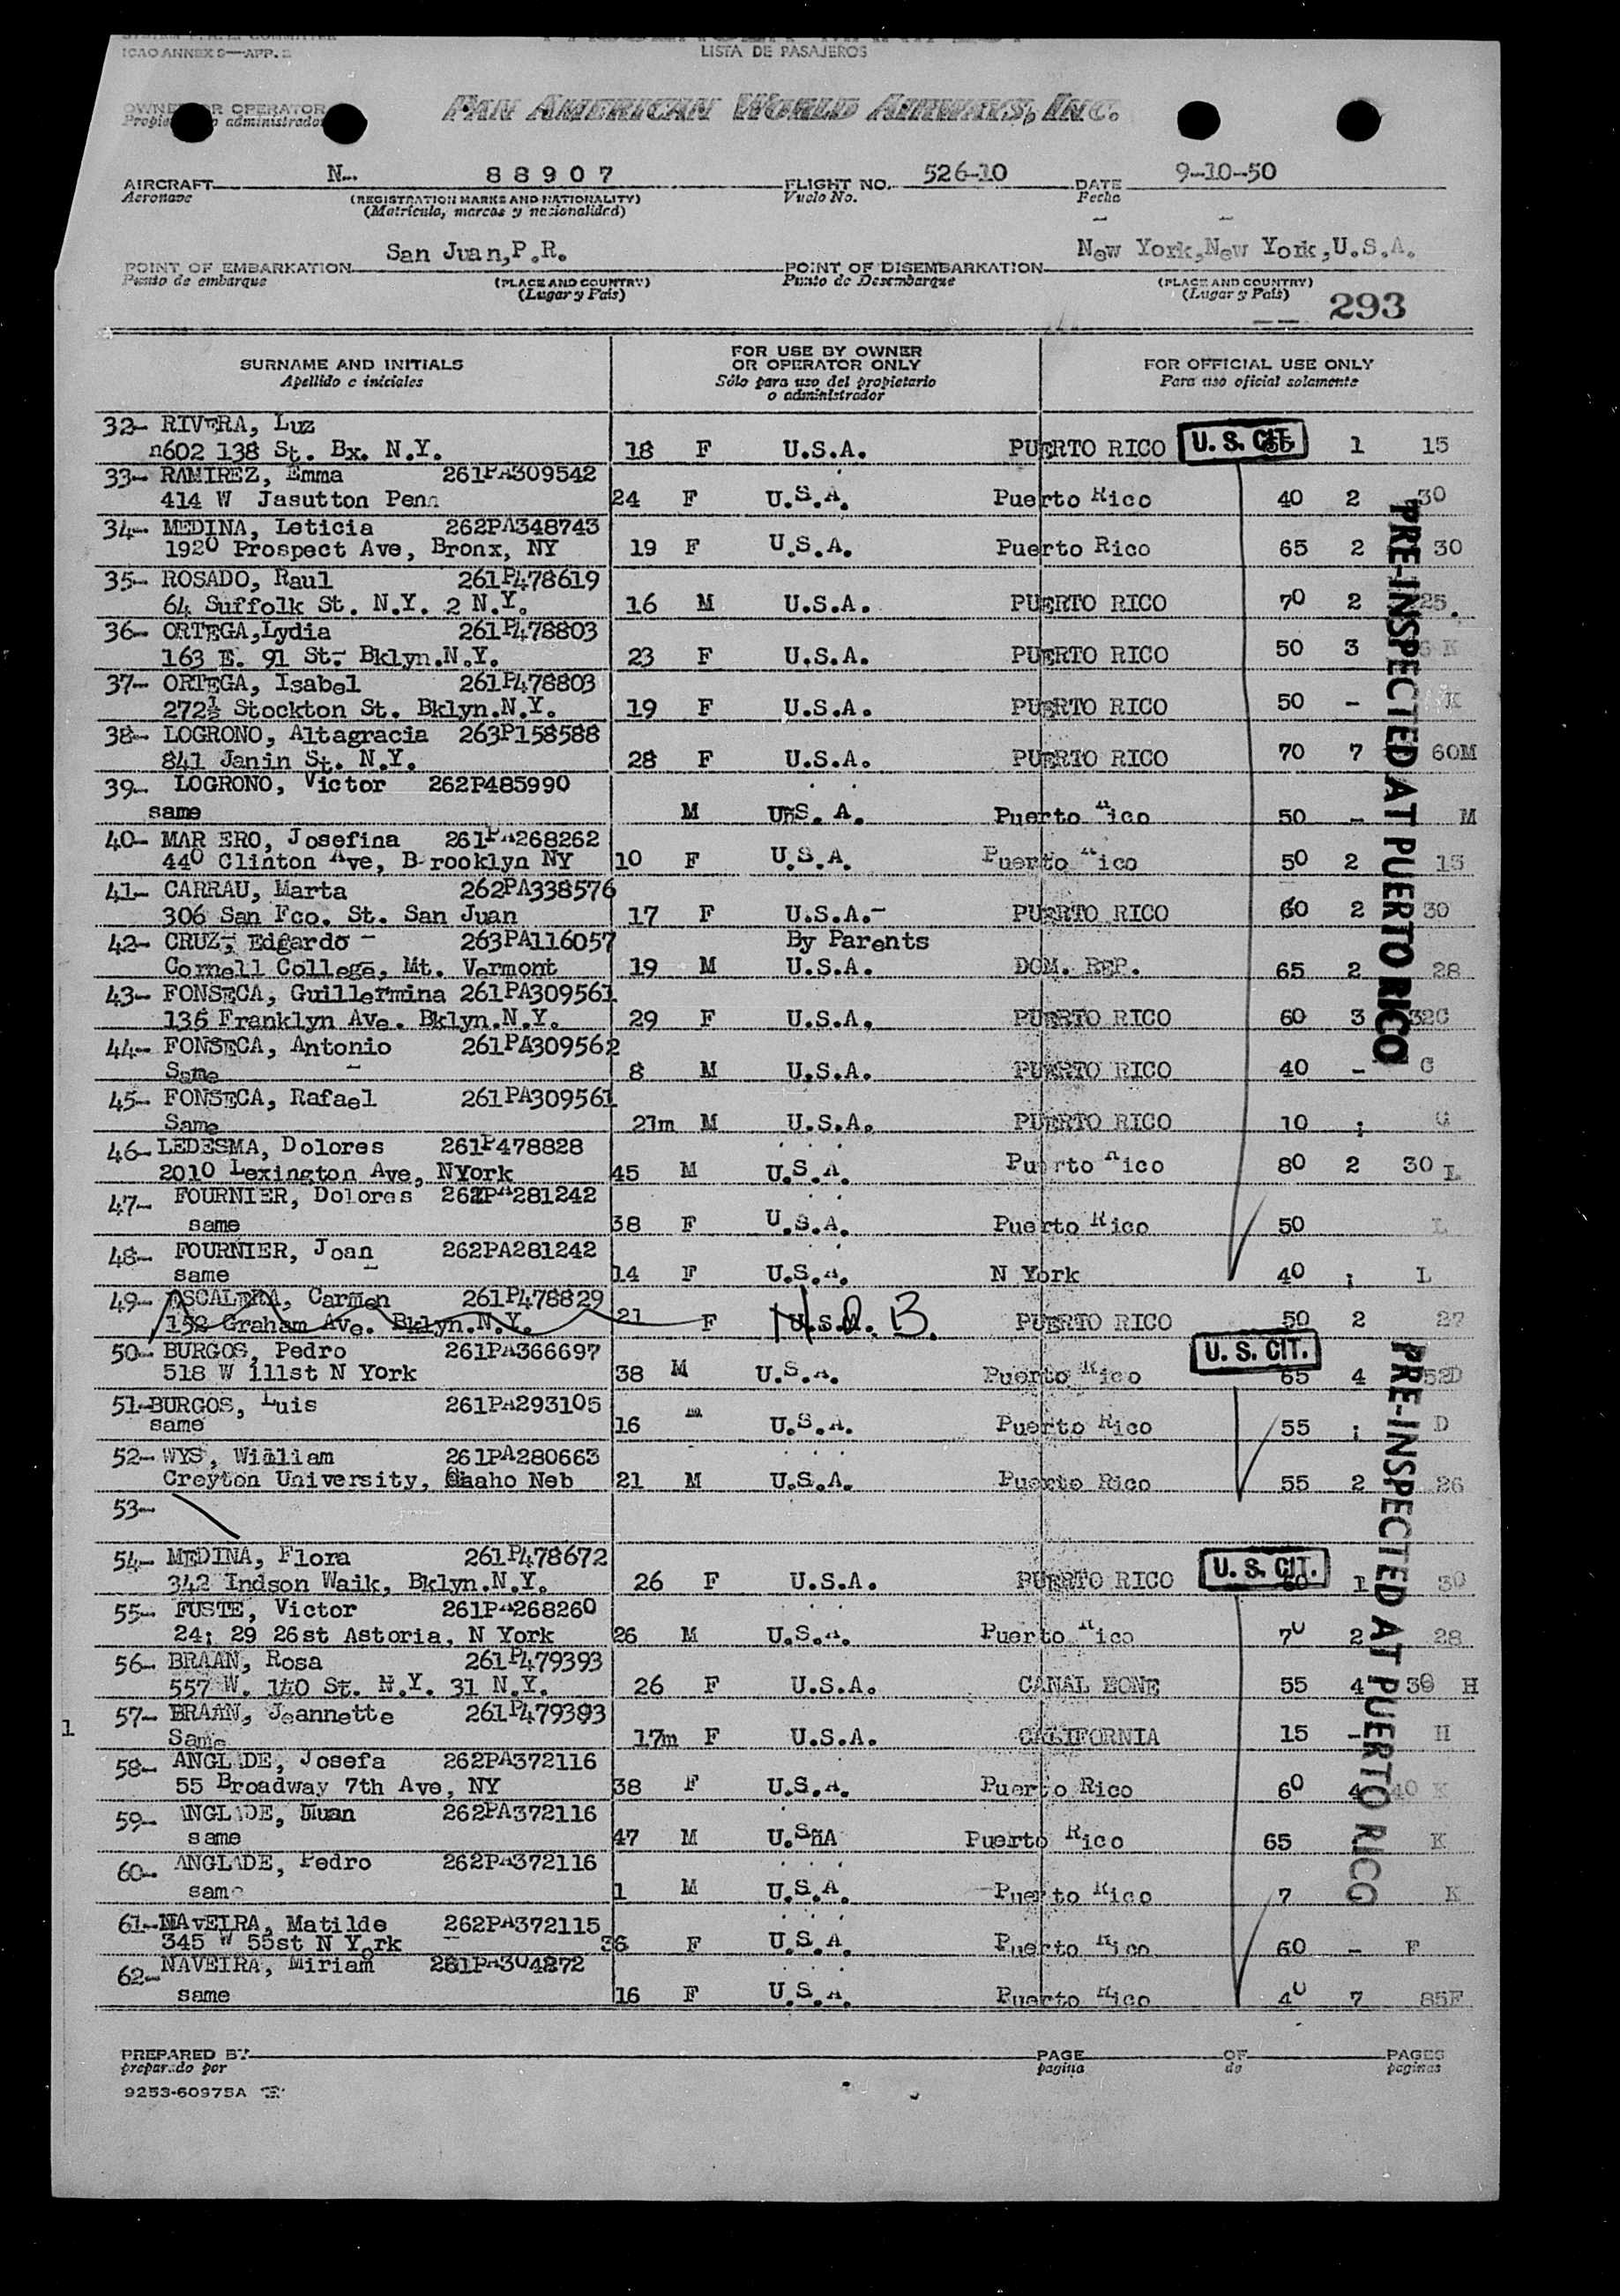 ICAO ANNEX 9—APP. 2
LISTA DE PASAJEROS
OWNER OR OPERATOR
Propietario o administrador
PAN AMERICAN WORLD AIRWAYS, INC.
AIRCRAFT N-. 88907 FLIGHT NO. 526-10 DATE 9-10-50
Aeronave (REGISTRATION MARKS AND NATIONALITY) Vuelo No. Fecha
(Matricula, marcas y nacionalidad)
POINT OF EMBARKATION San Juan,P.R. POINT OF DISEMBARKATION New York,New York,U.S.A.
Punto de embarque (PLACE AND COUNTRY) Punto de Desembarque (PLACE AND COUNTRY)
(Lugar y País) (Lugar y País) 293
SURNAME AND INITIALS FOR USE BY OWNER OR OPERATOR ONLY FOR OFFICIAL USE ONLY
Apellido e iniciales Sólo para uso del propietario o administrador Para uso oficial solamente
32- RIVERA, Luz
n602 138 St. Bx. N.Y. 18 F U.S.A. PUERTO RICO U. S. CIT. 1 15
33- RAMIREZ, Emma 261PA309542
414 W Jasutton Penn 24 F U.S.A. Puerto Rico 40 2 30
34- MEDINA, Leticia 262PA348743
1920 Prospect Ave, Bronx, NY 19 F U.S.A. Puerto Rico 65 2 30
35- ROSADO, Raul 261P478619
64 Suffolk St. N.Y. 2 N.Y. 16 M U.S.A. PUERTO RICO 70 2 25
36- ORTEGA,Lydia 261P478803
163 E. 91 St. Bklyn.N.Y. 23 F U.S.A. PUERTO RICO 50 3 K
37- ORTEGA, Isabel 261P478803
272½ Stockton St. Bklyn.N.Y. 19 F U.S.A. PUERTO RICO 50 - K
38- LOGRONO, Altagracia 263P158588
841 Janin St. N.Y. 28 F U.S.A. PUERTO RICO 70 7 60M
39- LOGRONO, Victor 262P485990
same M U.S.A. Puerto Rico 50 - M
40- MAR ERO, Josefina 261PA268262
440 Clinton Ave, B-rooklyn NY 10 F U.S.A. Puerto Rico 50 2 15
41- CARRAU, Marta 262PA338576
306 San Fco. St. San Juan 17 F U.S.A.- PUERTO RICO 60 2 30
42- CRUZ, Edgardo 263PA116057 By Parents
Cornell College, Mt. Vermont 19 M U.S.A. DOM. REP. 65 2 28
43- FONSECA, Guillermina 261PA309561
136 Franklyn Ave. Bklyn.N.Y. 29 F U.S.A. PUERTO RICO 60 3 32G
44- FONSECA, Antonio 261PA309562
Same 8 M U.S.A. PUERTO RICO 40 - G
45- FONSECA, Rafael 261PA309561
Same 27m M U.S.A. PUERTO RICO 10 ; G
46- LEDESMA, Dolores 261P478828
2010 Lexington Ave, NYork 45 M U.S.A. Puerto Rico 80 2 30 L
47- FOURNIER, Dolores 262PA281242
same 38 F U.S.A. Puerto Rico 50 L
48- FOURNIER, Joan 262PA281242
same 14 F U.S.A. N York 40 ; L
49- ESCALERA, Carmen 261P478829
152 Graham Ave. Bklyn.N.Y. 21 F U.S.A. N.O.B. PUERTO RICO 50 2 27
50- BURGOS, Pedro 261PA366697 U. S. CIT.
518 W 111st N York 38 M U.S.A. Puerto Rico 65 4 52D
51-BURGOS, Luis 261PA293105
same 16 m U.S.A. Puerto Rico 55 ; D
52- WYS, William 261PA280663
Creyton University, Omaho Neb 21 M U.S.A. Puerto Rico 55 2 26
53-
54- MEDINA, Flora 261P478672
342 Indson Waik, Bklyn.N.Y. 26 F U.S.A. PUERTO RICO U. S. CIT. 60 1 30
55- FUSTE, Victor 261PA268260
24; 29 26st Astoria, N York 26 M U.S.A. Puerto Rico 70 2 28
56- BRAAN, Rosa 261P479393
557 W. 140 St. N.Y. 31 N.Y. 26 F U.S.A. CANAL EONE 55 4 30 H
57- BRAAN, Jeannette 261P479393
1
Same 17m F U.S.A. CALIFORNIA 15 - H
58- ANGLADE, Josefa 262PA372116
55 Broadway 7th Ave, NY 38 F U.S.A. Puerto Rico 60 4 40 K
59- ANGLADE, Juan 262PA372116
same 47 M U.S.A Puerto Rico 65 K
60- ANGLADE, Pedro 262PA372116
same 1 M U.S.A. Puerto Rico 7 K
61-NAVEIRA, Matilde 262PA372115
345 W 55st N York 36 F U.S.A. Puerto Rico 60 - F
62- NAVEIRA, Miriam 261PA304872
same 16 F U.S.A. Puerto Rico 40 7 85F
PRE-INSPECTED AT PUERTO RICO
PRE-INSPECTED AT PUERTO RICO
PREPARED BY PAGE OF PAGES
preparado por pagina de paginas
9253-60975A